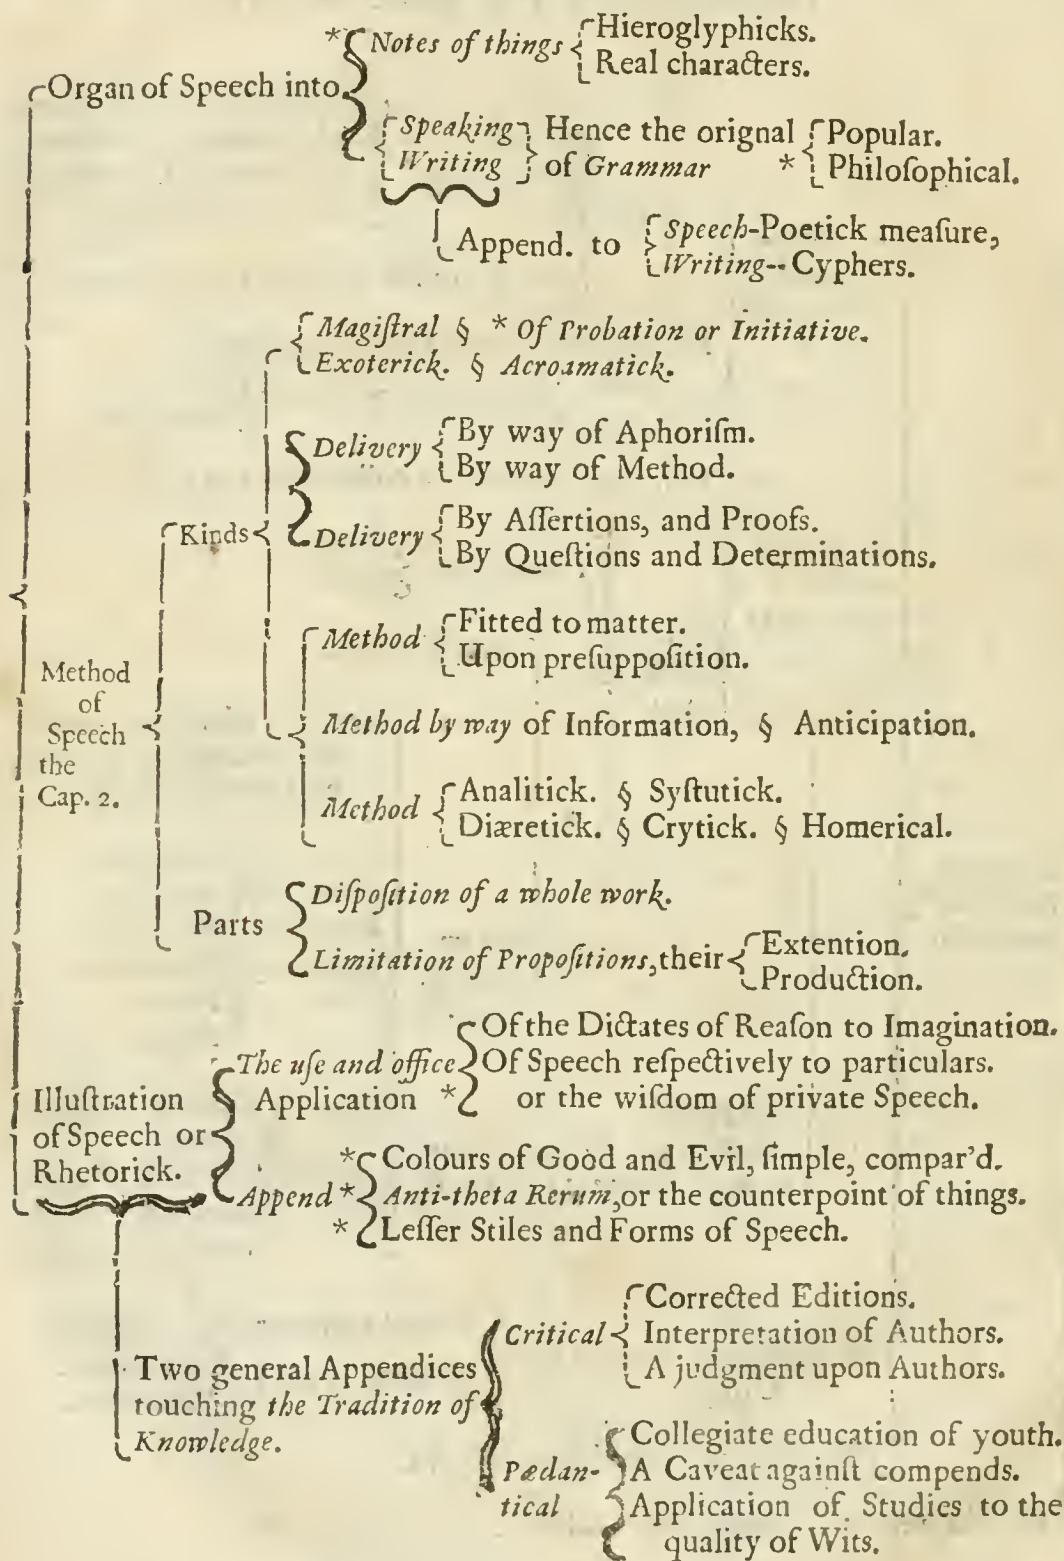 * Notes of things Hieroglyphicks.
Real characters.
Organ of Speech into
Speaking Hence the orignal Popular.
Writing of Grammar * Philoſophical.
Append. to Speech-Poetick meaſure,
Writing-- Cyphers.
Magiſtral § * Of Probation or Initiative.
Exoterick. § Acroamatick.
Delivery By way of Aphoriſm.
By way of Method.
Kinds
Delivery By Aſſertions, and Proofs.
By Queſtions and Determinations.
Method Fitted to matter.
Upon preſuppoſition.
Method
of
Speech
the
Cap. 2.
Method by way of Information, § Anticipation.
Method Analitick. § Syſtutick.
Diæretick. § Crytick. § Homerical.
Parts
Diſpoſition of a whole work.
Limitation of Propoſitions, their Extention.
Production.
Illuſtration
of Speech or
Rhetorick.
The uſe and office Of the Dictates of Reaſon to Imagination.
Of Speech reſpectively to particulars.
Application * or the wiſdom of private Speech.
* Colours of Good and Evil, ſimple, compar'd.
Append * Anti-theta Rerum, or the counterpoint of things.
* Leſſer Stiles and Forms of Speech.
Two general Appendices
touching the Tradition of
Knowledge.
Critical Corrected Editions.
Interpretation of Authors.
A judgment upon Authors.
Pædan-
tical
Collegiate education of youth.
A Caveat againſt compends.
Application of Studies to the
quality of Wits.